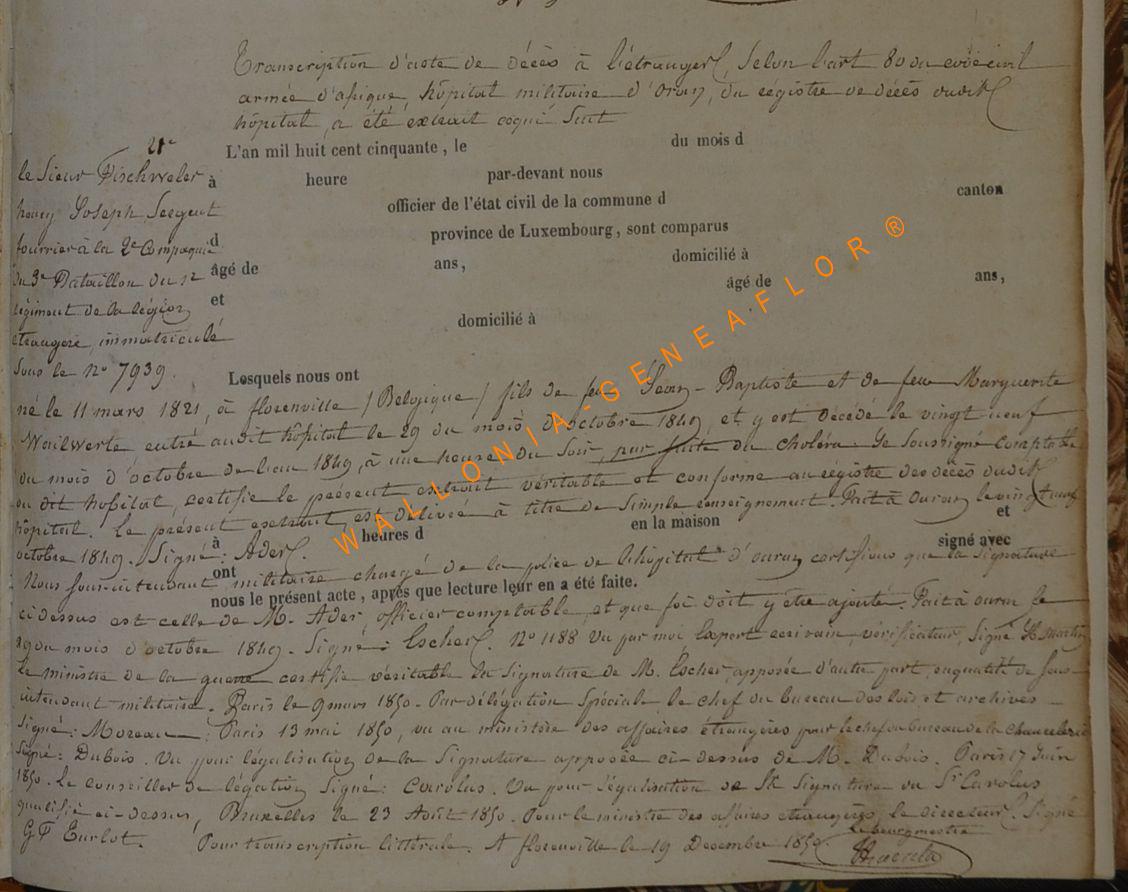 Transcription d'acte de décès à l'étranger, Selon l'art 80 du code civil
armée d'afrique, hôpital militaire d'Oran, du registre de décès dudit
hôpital, a été extrait ce qui Suit
L'an mil huit cent cinquante, le du mois d
à heure par-devant nous
officier de l'état civil de la commune d canton
d province de Luxembourg, sont comparus
âgé de ans, domicilié à
et âgé de ans,
domicilié à
Lesquels nous ont
le Sieur Fischweler
henry Joseph Sergent
fourrier à la 2e Compagnie
du 3e Bataillon du 1r
régiment de la légion
etrangere, immatriculé
Sous le no 7939.
né le 11 mars 1821, à florenville / Belgique / fils de feu Jean-Baptiste et de feue Marguerite
entré audit hôpital le 29 du mois d'octobre 1849, et y est décédé le vingt neuf
du mois d'octobre de l'an 1849, à une heure du Soir, par suite du choléra. Je Soussigné Comptable
du dit hôpital, certifie le présent extrait véritable et conforme au registre des décès dudit
hôpital. Le présent extrait est délivré à titre de Simple renseignement. Fait à Ouran le vingt neuf
octobre 1849. Signé: Ader.
à heures d en la maison et
ont signé avec
nous le présent acte, après que lecture leur en a été faite.
Nous Sous-intendant militaire chargé de la police de l'hôpital d'ouran certifions que la Signature
ci dessus est celle de M. Ader officier comptable, et que foi doit y être ajoutée. Fait à ouran le
29 du mois d'octobre 1849. Signé: Escher. No 1188 Vu par moi Expert ecrivain, vérificateur, Signé H. Martin
le ministre de la guerre certifie véritable la Signature de M. Escher, apposée d'autre part, en qualité de Sous
intendant militaire. Paris le 9 mars 1850. Par délégation Spéciale le chef du bureau des lois et archives
Signé: Moreau; Paris 13 mai 1850, vu au ministère des affaires étrangères pour le chef du bureau de la Chancelerie
Signé: Dubois. Vu pour légalisation de la Signature apposée ci-dessus de M. Dubois. Paris 17 Juin
1850. Le conseiller de légation Signé: Carolus. Vu pour légalisation de la Signature du Sr Carolus
qualifié ci-dessus, Bruxelles le 23 Août 1850. Pour le ministre des affaires etrangères, le directeur. Signé
Pour transcription littérale. A florenville le 19 Decembre 1850.
Le bourgmestre
WALLONIA-GENEAFLOR ®